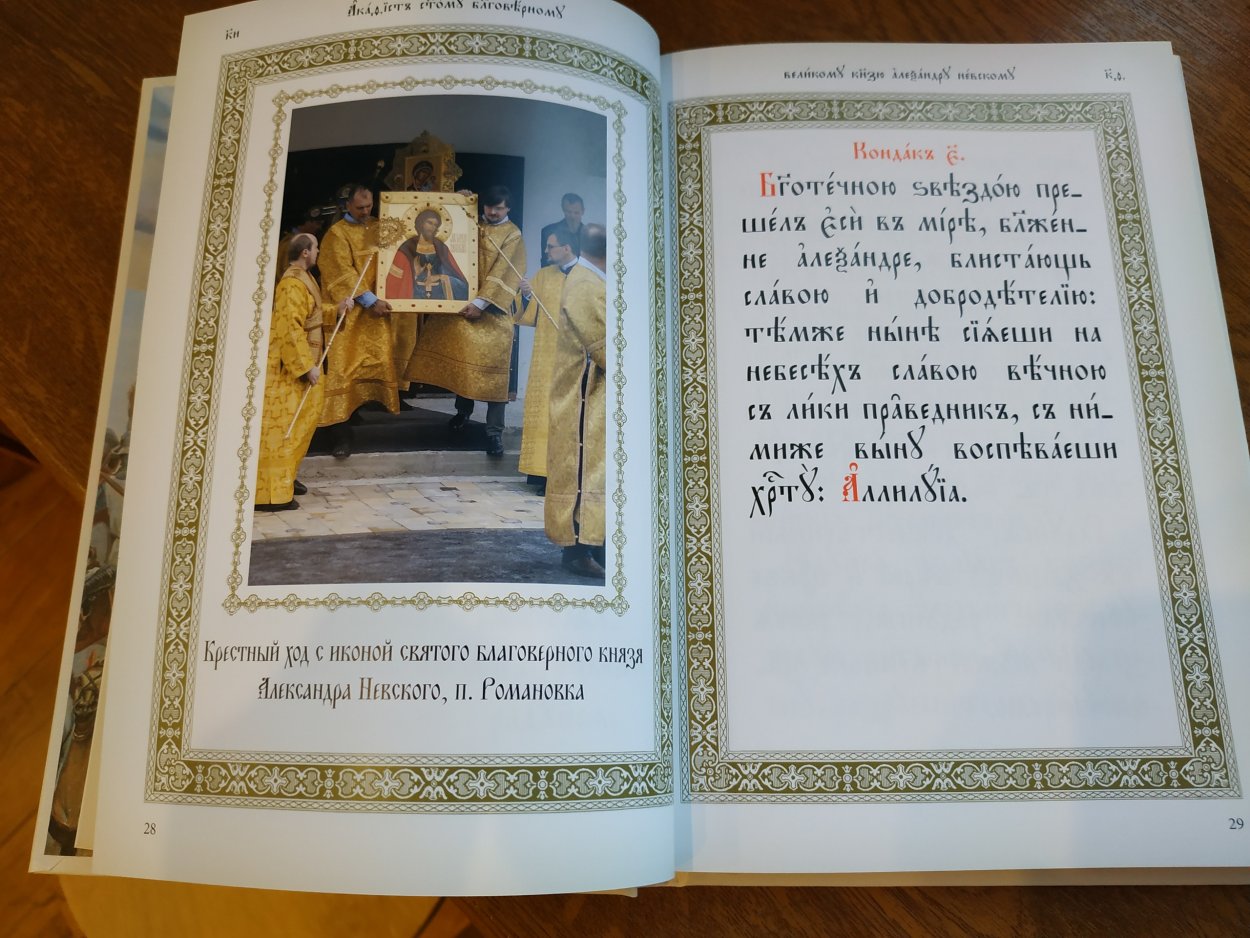 к҃и
А҆ка́ѳїстъ ст҃о́мꙋ бл҃говѣ́рномꙋ
Крестный ход с иконой святого благоверного князя
Александра Невского, п. Романовка
28
вели́комꙋ кн҃зю а҆леѯа́ндрꙋ не́вскомꙋ
к҃ѳ.
Конда́къ є҃.
Бг҃оте́чною ѕвѣздо́ю пре_
ше́лъ є҆сѝ въ мі́рѣ, бл҃же́н_
не а҆леѯа́ндре, блиста́ющь
сла́вою и҆ добродѣ́телїю:
тѣ́мже ны́нѣ сїѧ́еши на
небесѣ́хъ сла́вою вѣ́чною
съ ли́ки пра́ведникъ, съ ни́_
миже вы́нꙋ воспѣва́еши
хрⷭ҇тꙋ̀: А҆ллилꙋ́їа.
29